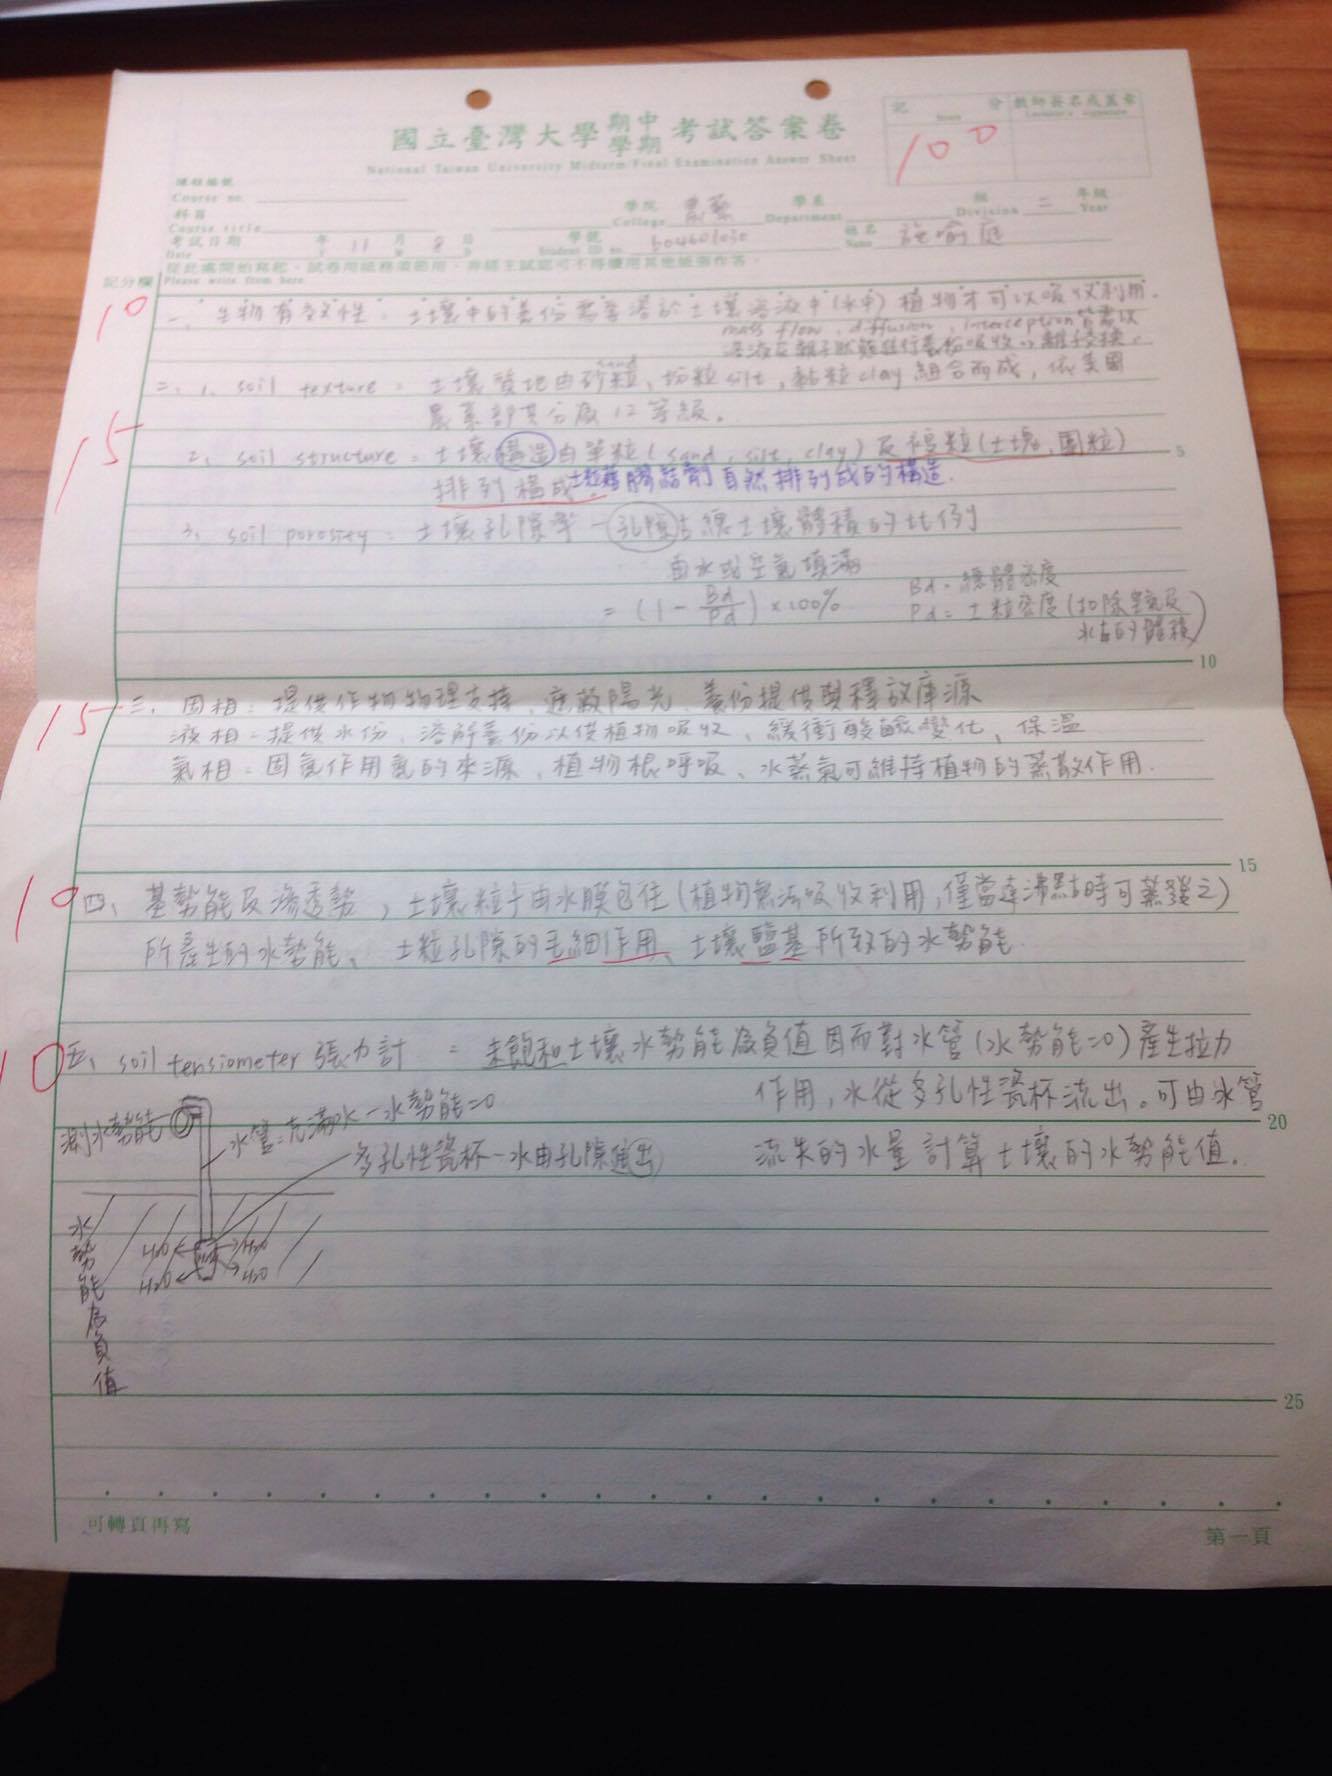 國立臺灣大學 期中 學期 考試答案卷
National Taiwan University Midterm/Final Examination Answer Sheet
記 分 Score 教師簽名或蓋章 Lecturer's signature
100
課程編號
Course no.
科目 學院 農藝 學系 組 二 年級
Course title College Department Division Year
考試日期 年 11 月 8 日 學號 b04601030 姓名 施喻庭
Date Y M D Student ID no. Name
從此處開始寫起,試卷用紙務須節用,非經主試認可不得續用其他紙張作答。
記分欄 Please write from here
10
一、生物有效性:土壤中的養份需要溶於土壤溶液中(水中)植物才可以吸收利用.
mass flow、diffusion、interception皆需以
15
二、1、soil texture = 土壤質地由砂粒sand、坋粒silt,黏粒clay組合而成,依美國
農業部其分為12等級。
2、soil structure = 土壤構造由單粒(sand, silt, clay)及複粒(土塊,團粒)
排列構成。土粒藉膠結劑自然排列成的構造.
5
3、soil porosity = 土壤孔隙率-孔隙占總土壤體積的比例
由水或空氣填滿
= (1 - Bd/Pd) ×100% Bd=總體密度
Pd=土粒密度(扣除空氣及
水占的體積)
10
15
三、固相:提供作物物理支持、遮蔽陽光、養份提供與釋放庫源
液相=提供水份、溶解養份以供植物吸收、緩衝酸鹼變化、保溫
氣相=固氮作用氮的來源、植物根呼吸、水蒸氣可維持植物的蒸散作用.
15
10
四、基勢能及滲透勢,土壤粒子由水膜包住(植物無法吸收利用,僅當達沸點時可蒸發之)
所產生的水勢能、土粒孔隙的毛細作用、土壤鹽基所致的水勢能.
10
五、soil tensiometer張力計 = 未飽和土壤水勢能為負值因而對水管(水勢能=0)產生拉力
作用,水從多孔性瓷杯流出。可由水管
20
流失的水量計算土壤的水勢能值.
測水勢能
水管=充滿水-水勢能=0
多孔性瓷杯-水由孔隙進出
水勢能為負值
H2O H2O
H2O H2O
25
可轉頁再寫
第一頁